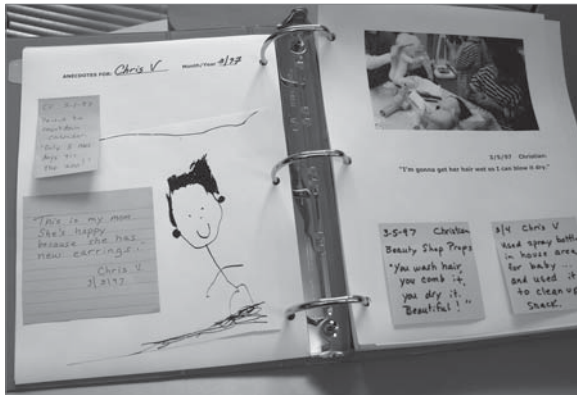 ANECDOTES FOR: Chris V Month/Year 3/97
CV 3-3-97
Pointed to
countdown
calendar.
"Only 8 more
days til
the zoo!!
"This is my mom.
She's happy
because she has
new earrings."
Chris V.
3/3/97
3/5/97 Christian:
"I'm gonna get her hair wet so I can blow it dry."
3-5-97 Christian
Beauty Shop Props
"You wash hair,
you comb it,
you dry it.
Beautiful!"
3/4 Chris V
Used spray bottle
in house area
for baby ...
and used it
to clean up
snack.